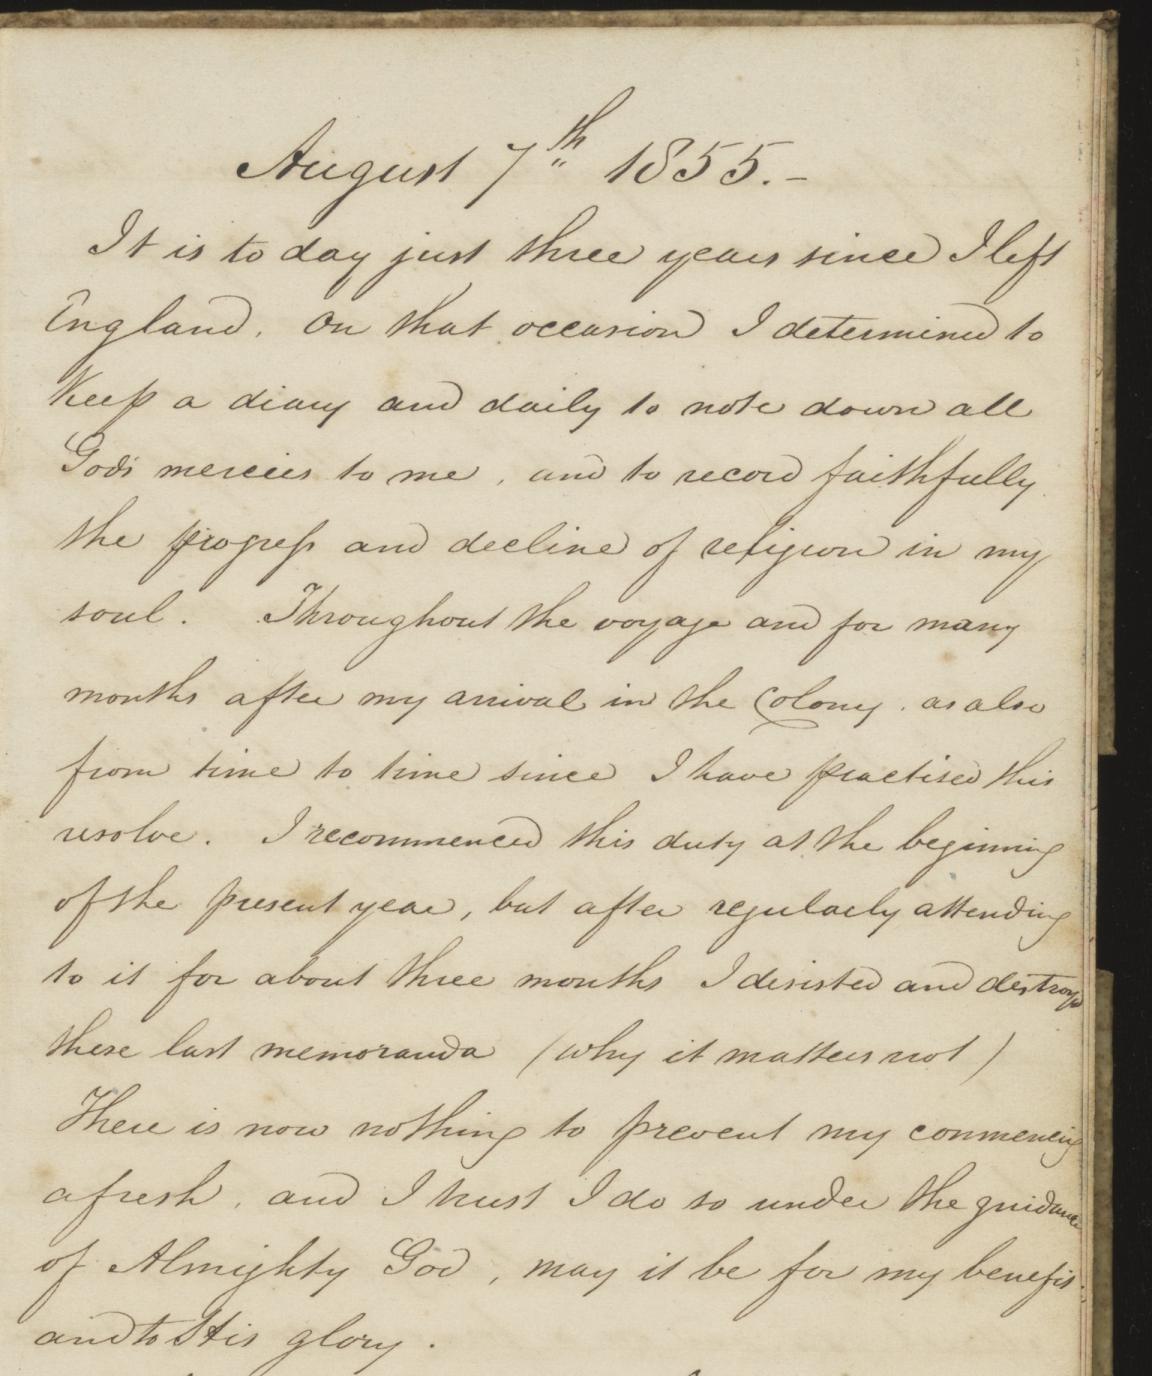 August 7th 1855.-
It is to day just three years since I left
England. On that occasion I determined to
Keep a diary and daily to note down all
Gods mercies to me, and to record faithfully
the progress and decline of religion in my
soul. Throughout the voyage and for many
months after my arrival in the Colony. as also
from time to time since I have practised this
resolve. I recommenced this duty at the beginning
of the present year, but after regularly attending
to it for about three months I desisted and destroyd
these last memoranda (why it matters not)
There is now nothing to prevent my commencing
afresh, and I trust I do so under the guidance
of Almighty God, may it be for my benefit
and to His glory.